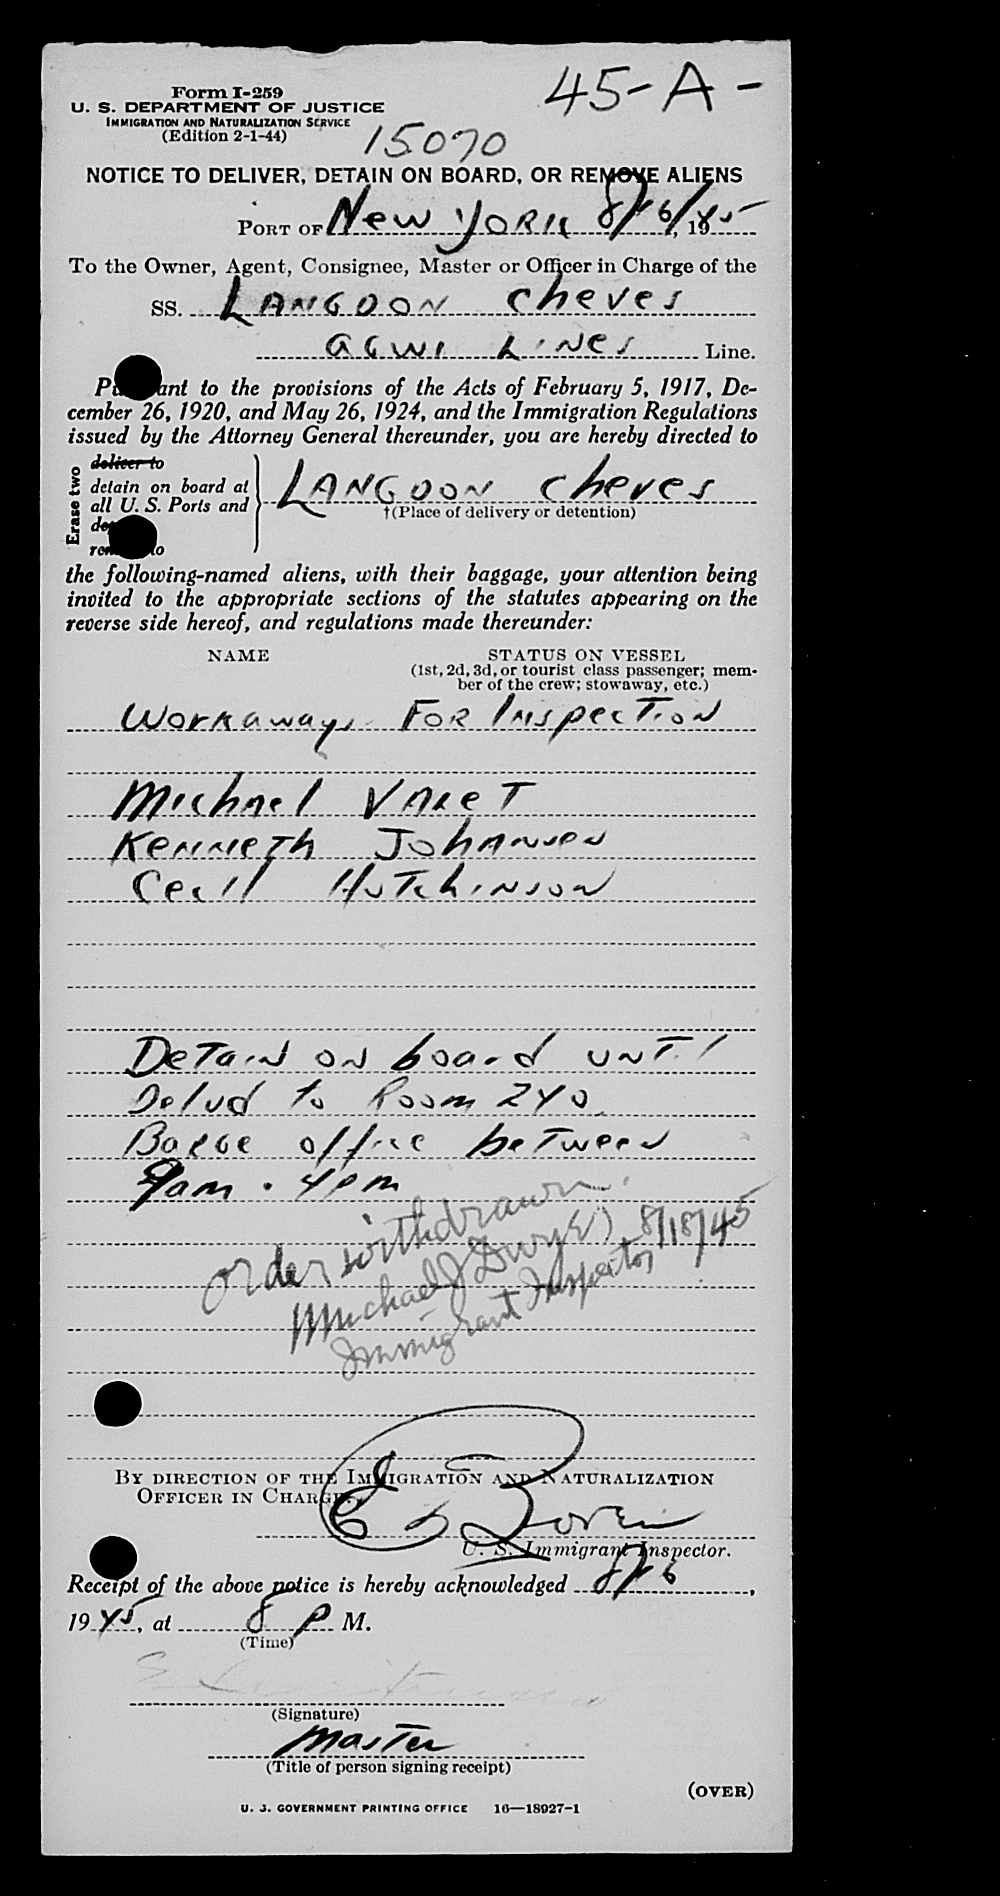 45-A-
Form I-259
U. S. DEPARTMENT OF JUSTICE
IMMIGRATION AND NATURALIZATION SERVICE
(Edition 2-1-44)
15070
NOTICE TO DELIVER, DETAIN ON BOARD, OR REMOVE ALIENS
PORT OF New York 8/16/, 1945
To the Owner, Agent, Consignee, Master or Officer in Charge of the
SS. LANGDON Cheves
AGWI LINES Line.
to the provisions of the Acts of February 5, 1917, De-
cember 26, 1920, and May 26, 1924, and the Immigration Regulations
issued by the Attorney General thereunder, you are hereby directed to
Erase two
deliver to
detain on board at
all U. S. Ports and
LANGDON Cheves
†(Place of delivery or detention)
the following-named aliens, with their baggage, your attention being
invited to the appropriate sections of the statutes appearing on the
reverse side hereof, and regulations made thereunder:
NAME STATUS ON VESSEL
(1st, 2d, 3d, or tourist class passenger; mem-
ber of the crew; stowaway, etc.)
Workaways FOR INspecTioN
Michael
Kenneth Johansen
Cecil Hutchinson
DeTain on board unTil
Delvd to Room 240
Barge office beTween
9am . 4pm
order withdrawn
Michael J Dwyer 8/18/45
Immigrant Inspector
BY DIRECTION OF THE IMMIGRATION AND NATURALIZATION
OFFICER IN CHARGE.
U. S. Immigrant Inspector.
Receipt of the above notice is hereby acknowledged 8/16,
1945, at 8 P M.
(Time)
(Signature)
Master
(Title of person signing receipt)
(OVER)
U. S. GOVERNMENT PRINTING OFFICE 16—18927-1